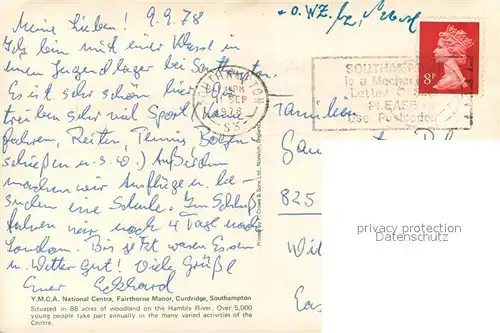 Meine Lieben! 9.9.78
Ich bin mit einer Klasse in
einem Jugendlager bei Southampton.
Es ist sehr schön hier. Wir
treiben sehr viel Sport (Kanu-
fahren, Reiten, Tennis, Bogen-
schießen u.s.w.) Außerdem
machen wir Ausflüge u. be-
suchen eine Schule. Zum Schluß
fahren wir noch 4 Tage nach
London. Bis jetzt waren Essen
u. Wetter gut! Viele Grüße
Euer Eckhard
Y.M.C.A. National Centre, Fairthorne Manor, Curdridge, Southampton
Situated in 88 acres of woodland on the Hamble River. Over 5,000
young people take part annually in the many varied activities of the
Centre.
SEP
1978
SOUTHAMPTON
is a Mechanised
Letter Office
PLEASE
Use Postcodes
8P
825
privacy protection
Datenschutz